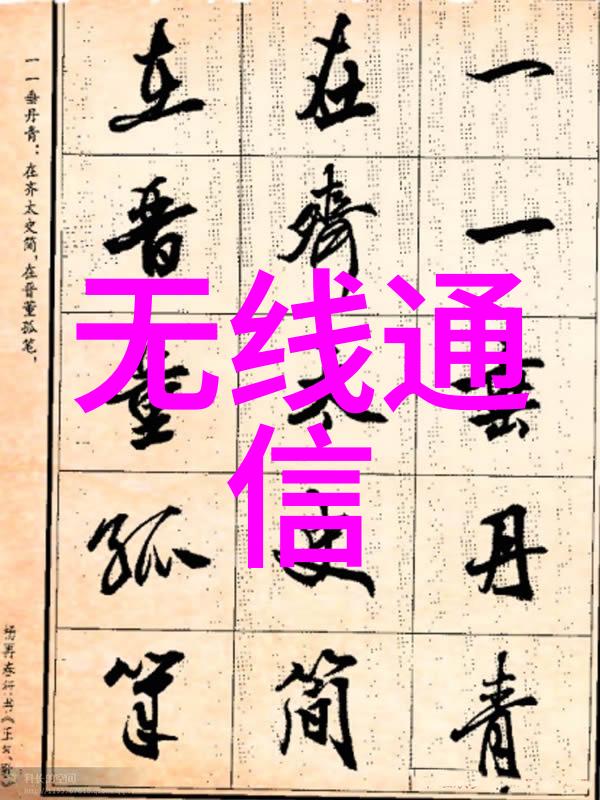 一一垂丹青
在齐太史简
在晋董狐笔
一一垂丹青：在齐太史简，在晋董狐笔，
无线通
信
科长的空间